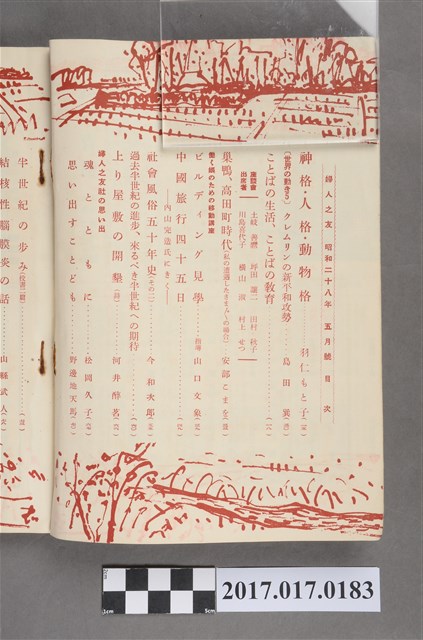 婦人之友 昭和二十八年 五月號 目次
神格・人格・動物格……羽仁もと子
(世界の動き) クレムリンの新平和攻勢……島田巽
ことばの生活、ことばの教育
座談會出席者
土岐善麿 坪田讓二 田村秋子
川島喜代子 横山 村上せつ
巣鴨、高田町時代……安部こま
働く頭のための移動講座
ビルディング見學……指導 山口文象
中國旅行四十五日
──内山完造氏にきく──
社會風俗五十年史(その二)……今和次郎
過去半世紀の進歩、來るべき半世紀への期待
上り屋敷の開墾……河井酔茗
婦人之友社の思い出
魂とともに……松岡久子
思い出すことども……野邊地天馬
半世紀の歩み
結核性腦膜炎の話……山縣武人
2017.017.0183
1cm
5cm